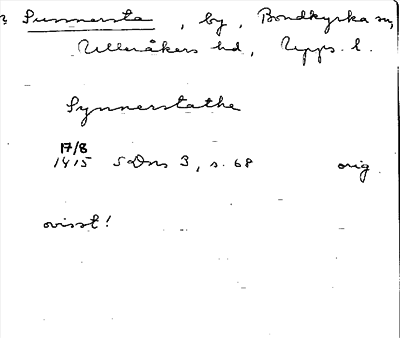 Sunnersta, by, Bondkyrka sn,
Ulleråkers hd, Upps. l.
Synnerstathe
17/8
1415 SDns 3, s. 68 orig.
ovisst!